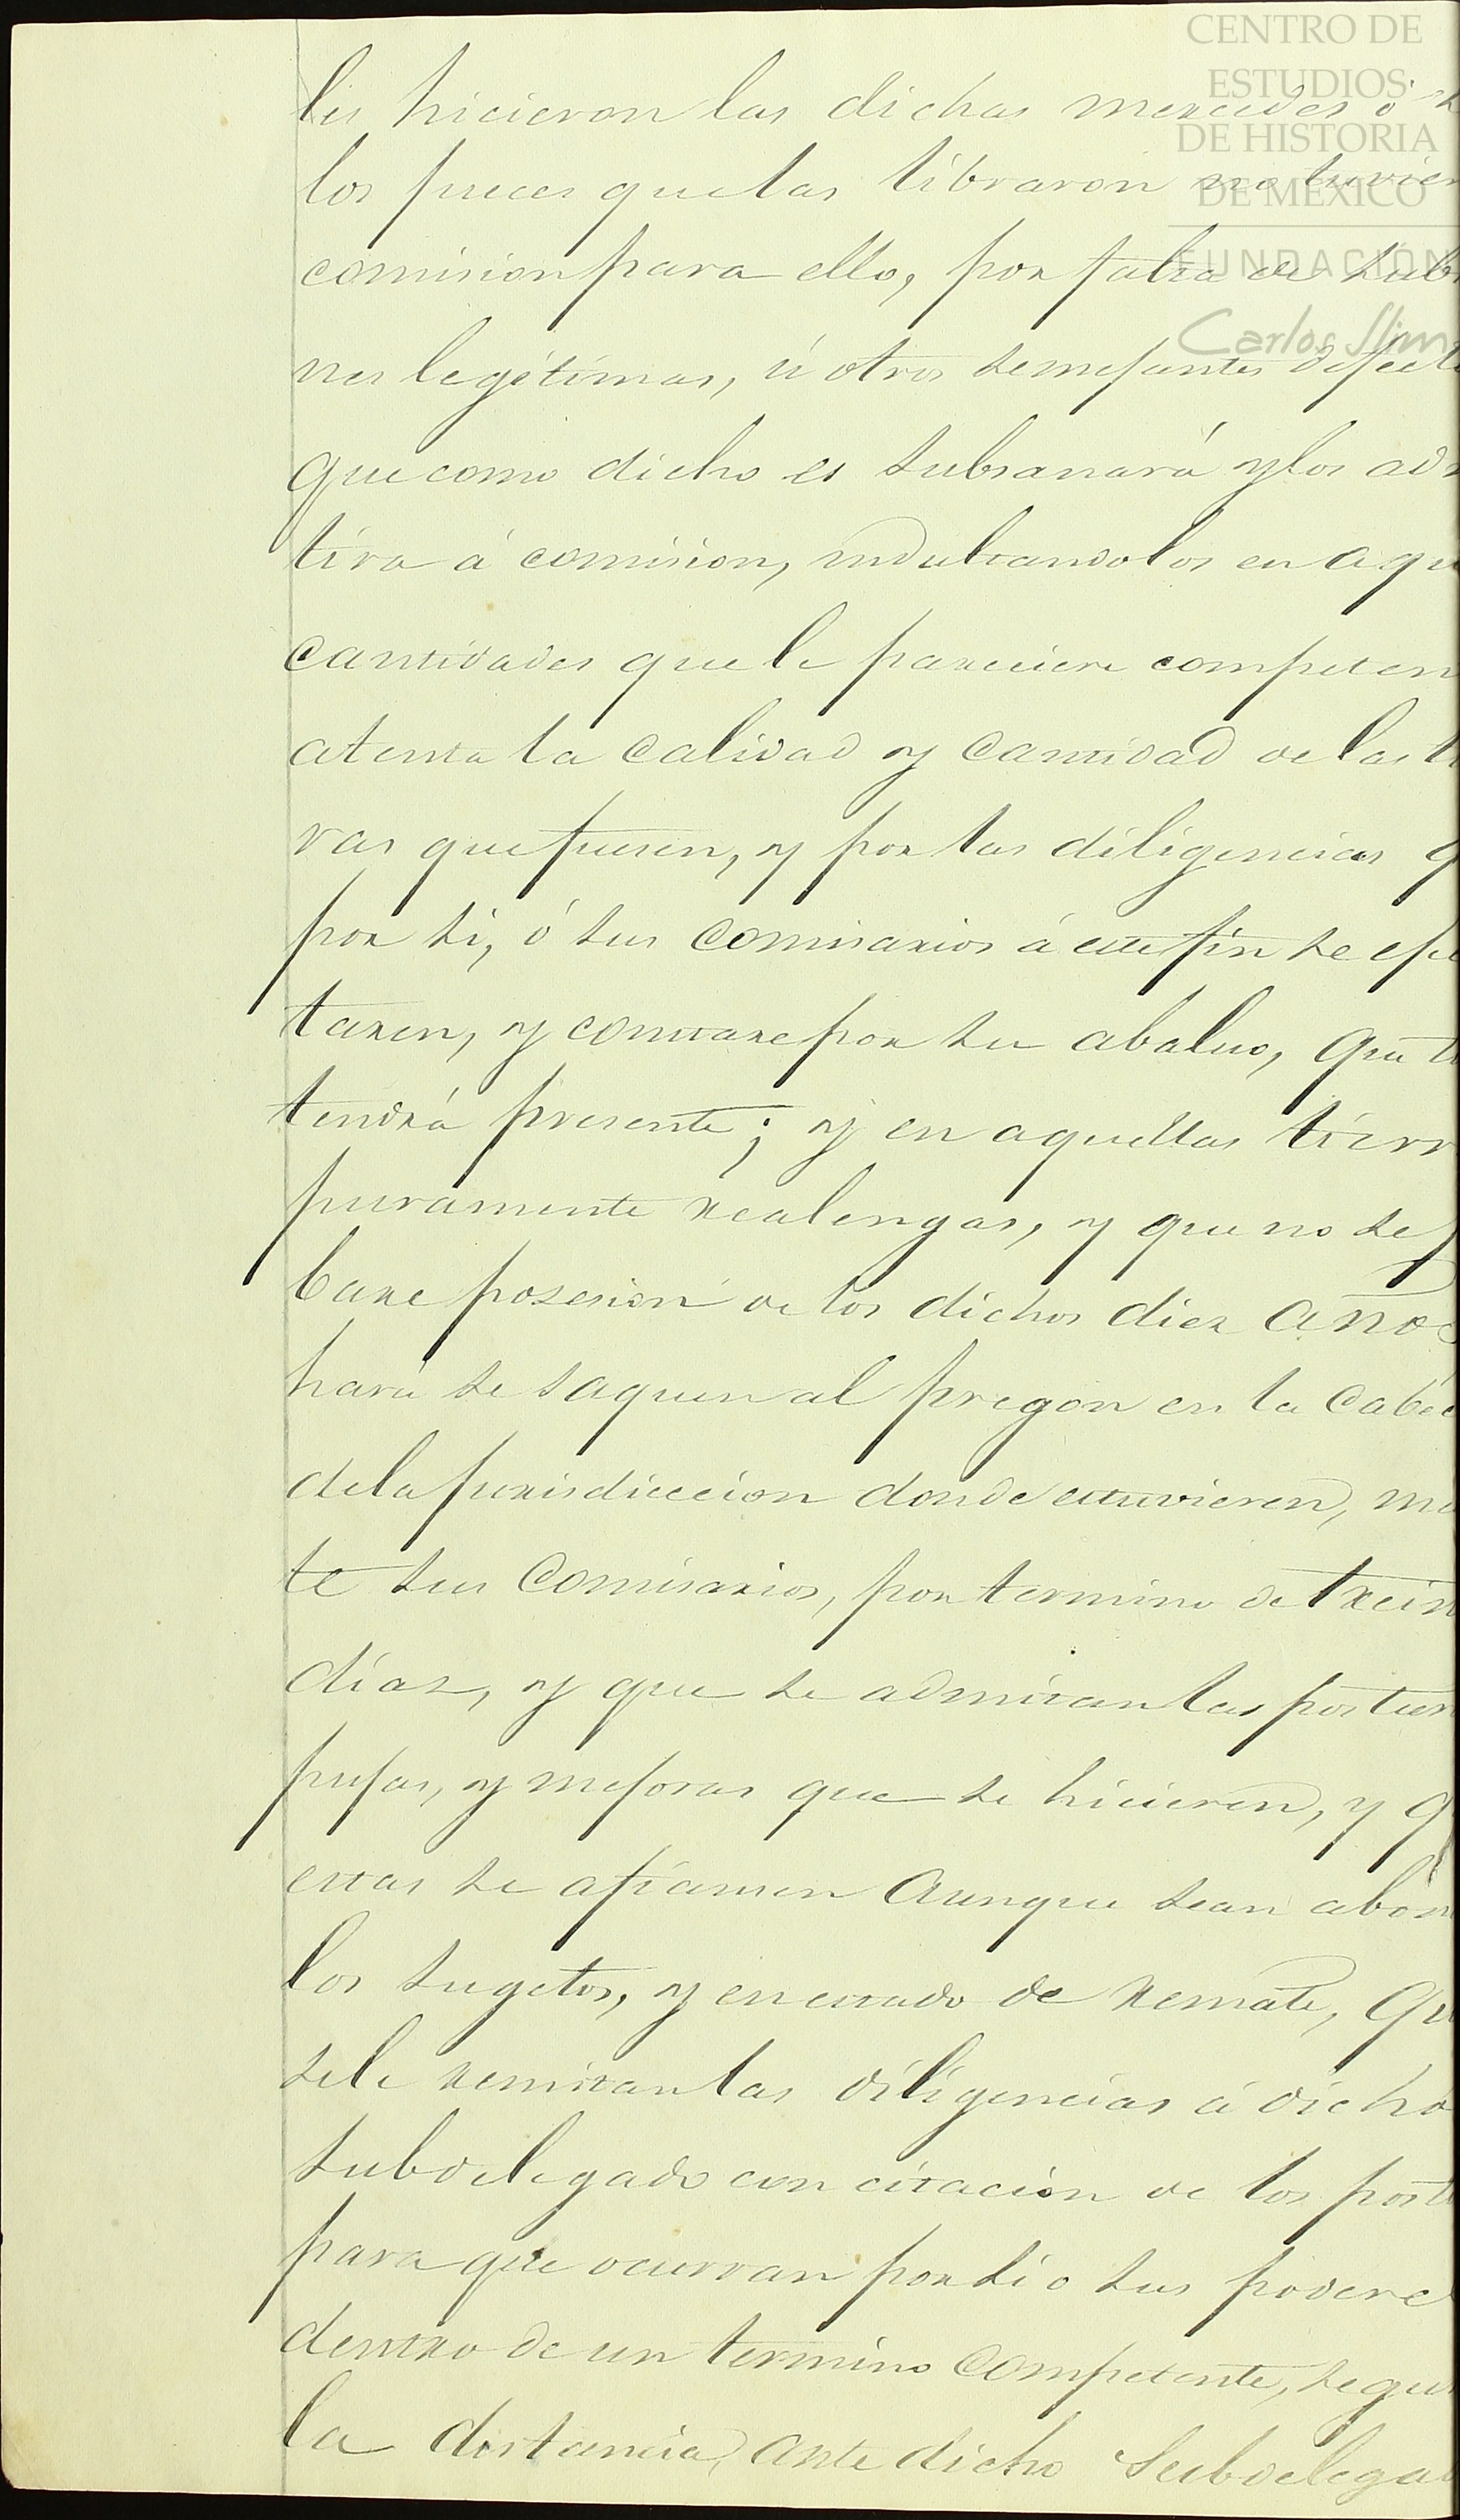 CENTRO DE
ESTUDIOS
DE HISTORIA
DE MÉXICO
FUNDACIÓN
Carlos Slim
les hicieron las dichas mercedes ó
los jueces que las libraron no tuvier
comision para ello, por falta de sub
nes legítimas, ú otros semejantes defect
que como dicho es subsanará y los ad
tira á comision, indultandolos en aqu
cantidades que le pareciere competen
atenta la calidad y cantidad de las ti
ras que fuesen, y por las diligencias q
por si, ó sus comisarios á este fin se eje
taren, y constare por su abaluo, que t
tendrá presente; y en aquellas tierr
puramente realengas, y que no se p
bare posesion de los dichos diez años
hará se saquen al pregon en la cabec
de la jurisdiccion donde estuvieren, me
te sus comisarios, por termino de trein
dias, y que se admitan las postur
pujas, y mejoras que se hicieren, y q
estas se afiansen aunque sean abon
los sugetos, y en estado de remate, qu
se le remitan las diligencias á dicho
subdelegado con citacion de los post
para que ocurran por si o sus podere
dentro de un termino competente, segun
la distancia, ante dicho Subdelegad